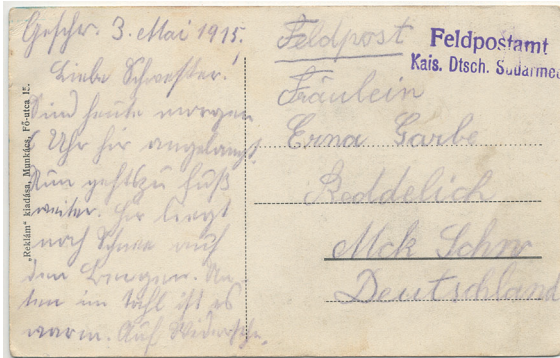 Geschr. 3. Mai 1915,
Liebe Schwester.
Sind heute morgen
6 Uhr hir angelangt.
Nun gehts zu Fuß
weiter. Hir liegt
noch Schnee auf
den Bergen. Un
ten im Tahl ist es
warm. Auf Wiedersehn.
„Reklám" kiadása, Munkács, Fő-utca 12.
Feldpost
Feldpostamt
Kais. Dtsch. Südarmee
Fräulein
Erna Garbe
Reddelich
Mck Schw
Deutschland